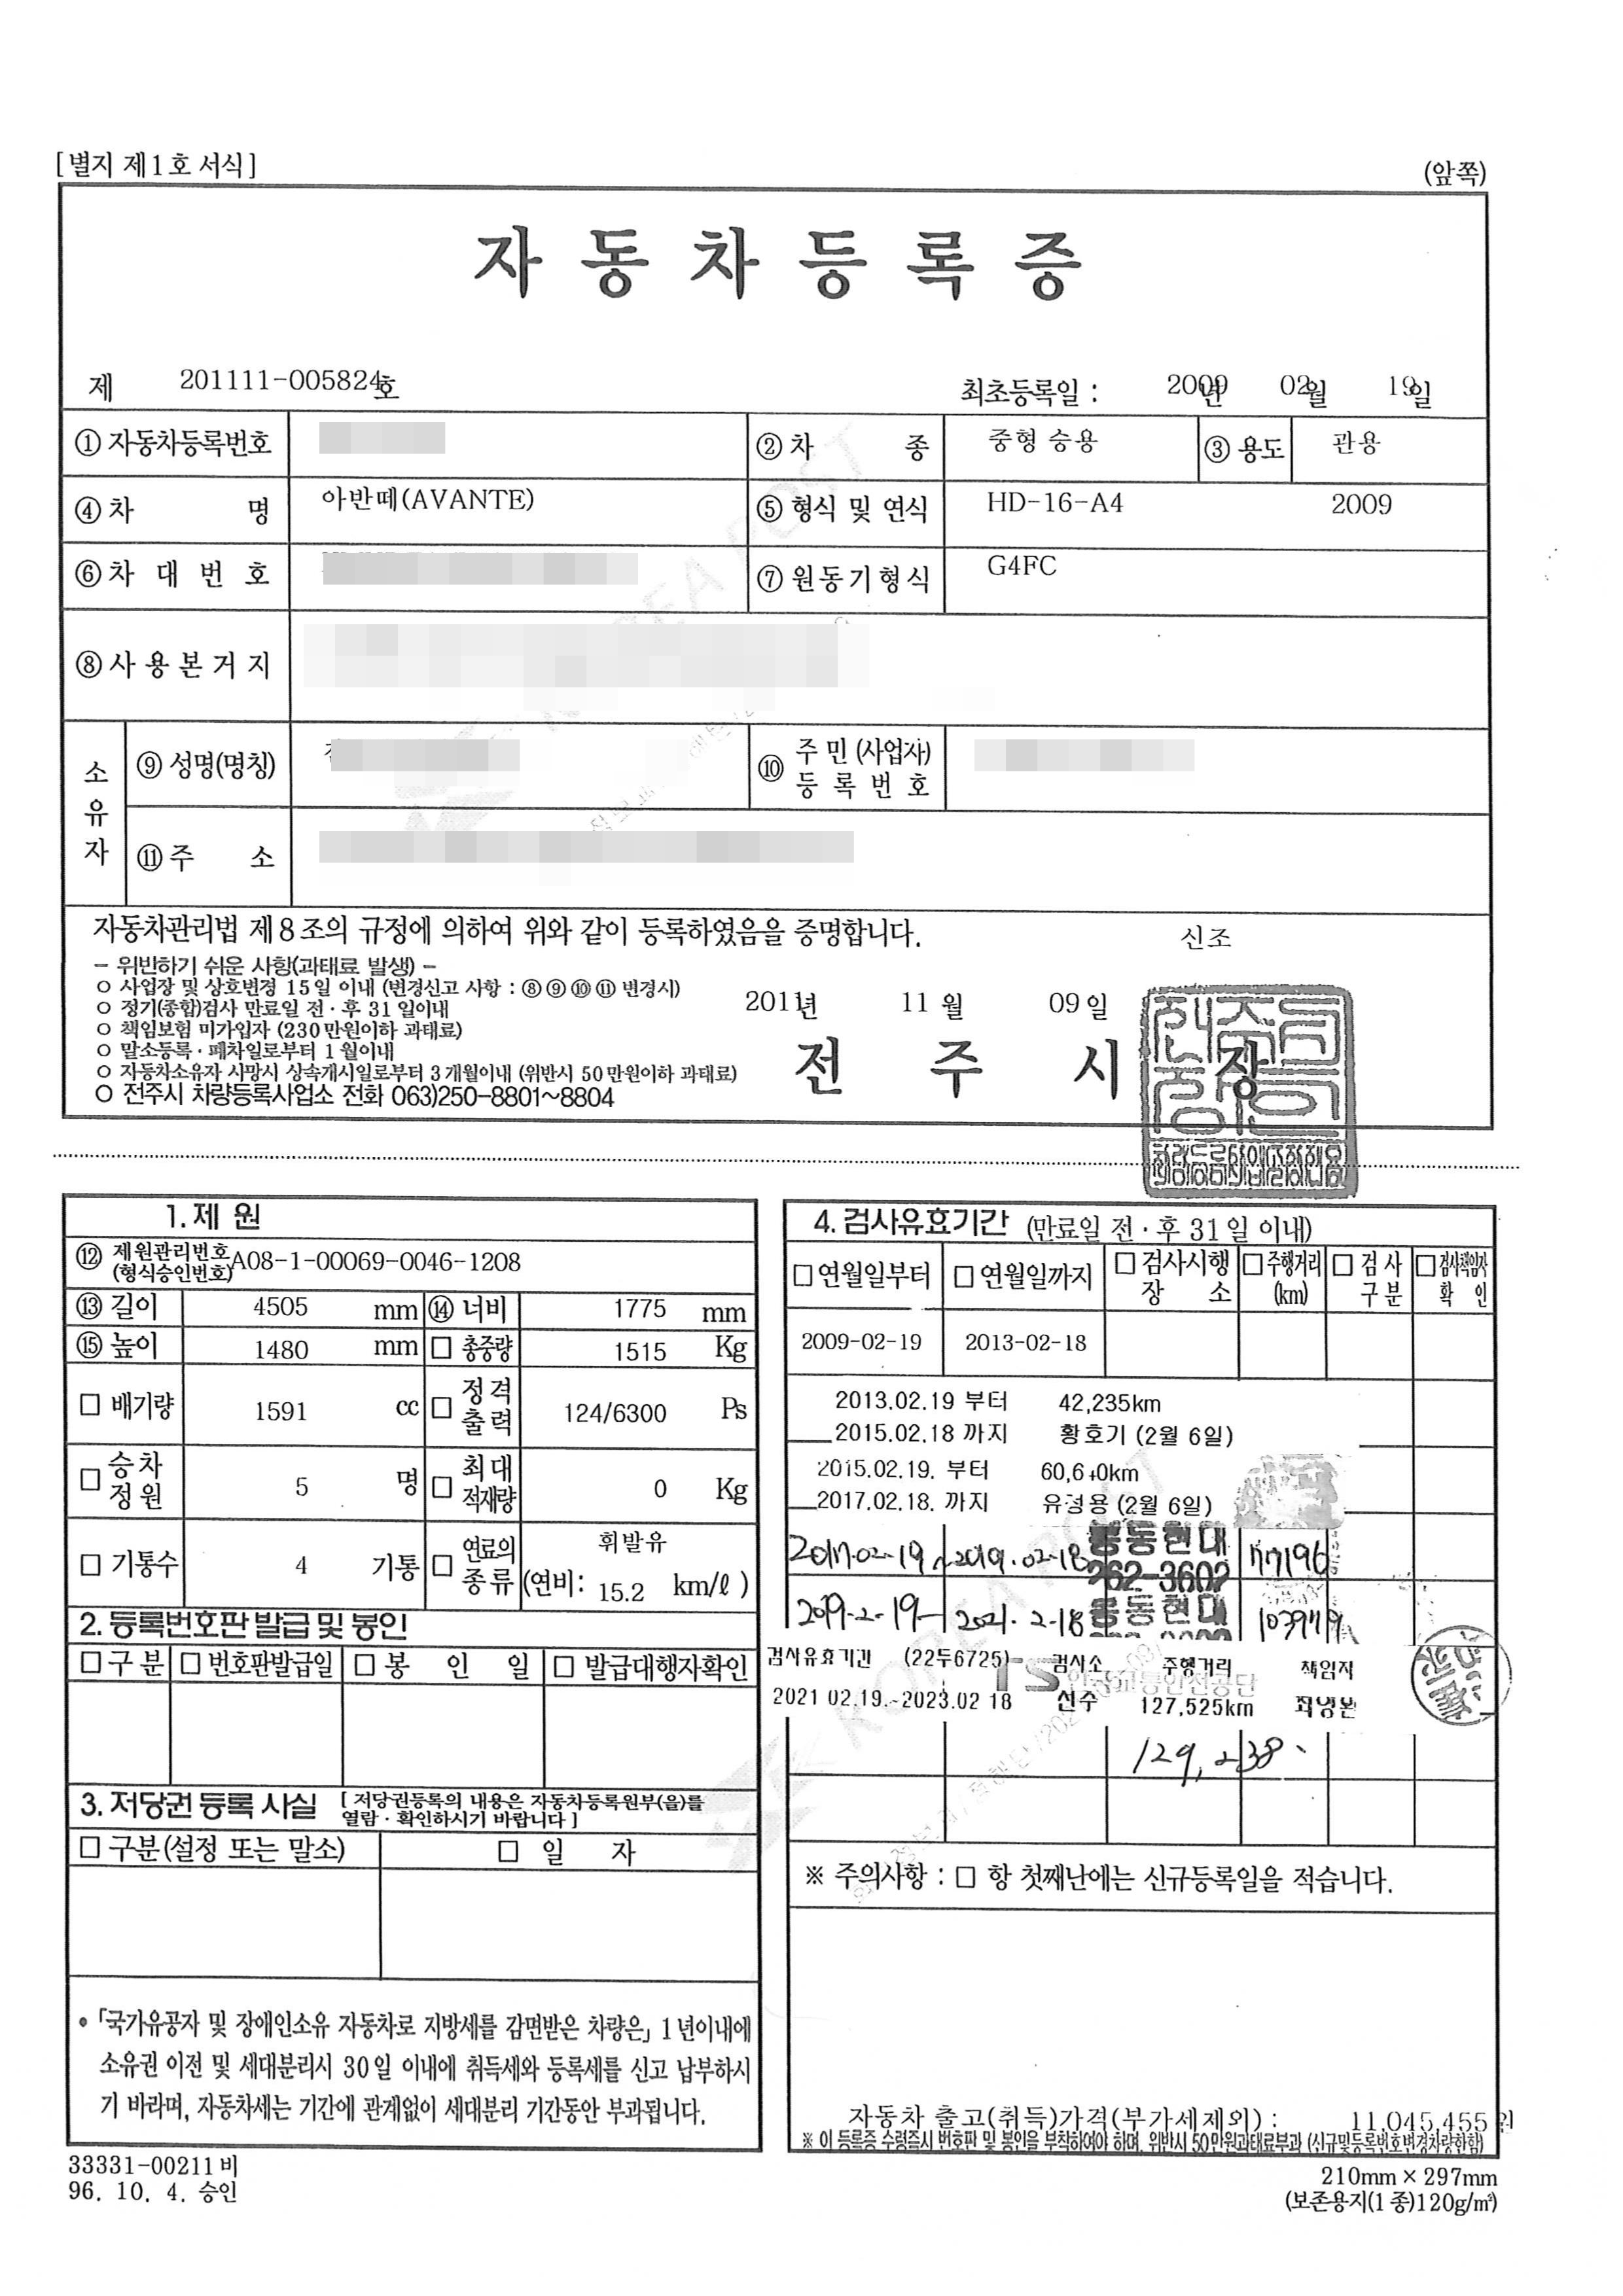 [별지 제1호 서식]
(앞쪽)
자동차등록증
제 201111-005824호
최초등록일 : 2009년 02월 19일
① 자동차등록번호
② 차 종 중형 승용 ③ 용도 관용
④ 차 명 아반떼(AVANTE) ⑤ 형식 및 연식 HD-16-A4 2009
⑥ 차 대 번 호 ⑦ 원동기형식 G4FC
⑧ 사 용 본 거 지
소유자
⑨ 성명(명칭) ⑩ 주 민 (사업자) 등 록 번 호
⑪ 주 소
자동차관리법 제8조의 규정에 의하여 위와 같이 등록하였음을 증명합니다.
신조
- 위반하기 쉬운 사항(과태료 발생) -
ㅇ 사업장 및 상호변경 15일 이내 (변경신고 사항 : ⑧⑨⑩⑪ 변경시)
ㅇ 정기(종합)검사 만료일 전·후 31일이내
ㅇ 책임보험 미가입자 (230만원이하 과태료)
ㅇ 말소등록·폐차일로부터 1월이내
ㅇ 자동차소유자 사망시 상속개시일로부터 3개월이내 (위반시 50만원이하 과태료)
ㅇ 전주시 차량등록사업소 전화 063)250-8801~8804
2011년 11월 09일
전 주 시 장
1. 제 원
⑫ 제원관리번호 (형식승인번호) A08-1-00069-0046-1208
⑬ 길이 4505 mm ⑭ 너비 1775 mm
⑮ 높이 1480 mm □ 총중량 1515 Kg
□ 배기량 1591 cc □ 정격출력 124/6300 Ps
□ 승차정원 5 명 □ 최대적재량 0 Kg
□ 기통수 4 기통 □ 연료의 종류 휘발유 (연비: 15.2 km/ℓ)
2. 등록번호판 발급 및 봉인
□ 구 분 □ 번호판발급일 □ 봉 인 일 □ 발급대행자확인
3. 저당권 등록 사실 [ 저당권등록의 내용은 자동차등록원부(을)를
열람·확인하시기 바랍니다 ]
□ 구분(설정 또는 말소) □ 일 자
• 「국가유공자 및 장애인소유 자동차로 지방세를 감면받은 차량은」 1년이내에
소유권 이전 및 세대분리시 30일 이내에 취득세와 등록세를 신고 납부하시
기 바라며, 자동차세는 기간에 관계없이 세대분리 기간동안 부과됩니다.
4. 검사유효기간 (만료일 전·후 31일 이내)
□ 연월일부터 □ 연월일까지 □ 검사시행 장 소 □ 주행거리 (km) □ 검 사 구 분 □ 검사책임자 확 인
2009-02-19 2013-02-18
2013.02.19 부터 42,235km
2015.02.18 까지 황호기 (2월 6일)
2015.02.19. 부터
2017.02.18. 까지 유경용 (2월 6일)
2017-02-19 ~ 2019.02-18 현대 262-3602 77196
2019-2-19 - 2021.2-18 현대 103979
검사유효기간 (22두6725) TS 검사소 주행거리 책임자
2021 02.19.~2023.02 18 전주 127,525km
129,238
※ 주의사항 : □ 항 첫째난에는 신규등록일을 적습니다.
자동차 출고(취득)가격(부가세제외) : 11,045,455 원
※ 이 등록증 수령즉시 번호판 및 봉인을 부착하여야 하며, 위반시 50만원과태료부과 (신규및등록번호변경차량한함)
33331-00211비
96. 10. 4. 승인
210mm×297mm
(보존용지(1종)120g/㎡)
KOREA POST
KOREA POST